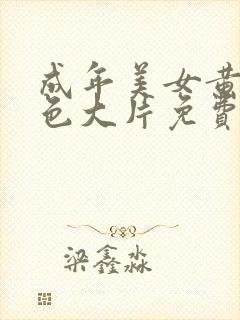 成年美女黄
色大片免费
梁鑫淼